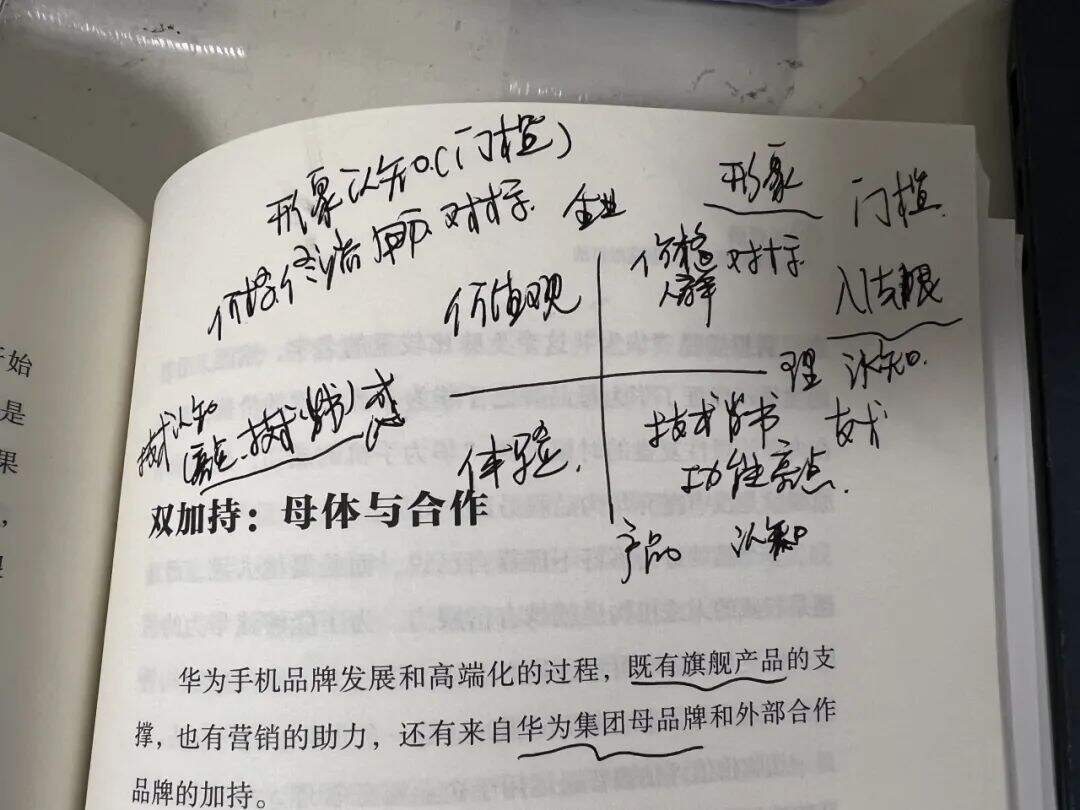 形象认知(门槛)
价格、终端 对标
企业
形象
门槛
价值观
价格 对标
人群
理
认知
技术认知
技术(背书)
体验
技术背书
技术
功能亮点
产品 认知
双加持：母体与合作
华为手机品牌发展和高端化的过程，既有旗舰产品的支
撑，也有营销的助力，还有来自华为集团母品牌和外部合作
品牌的加持。
开始
是
果
，